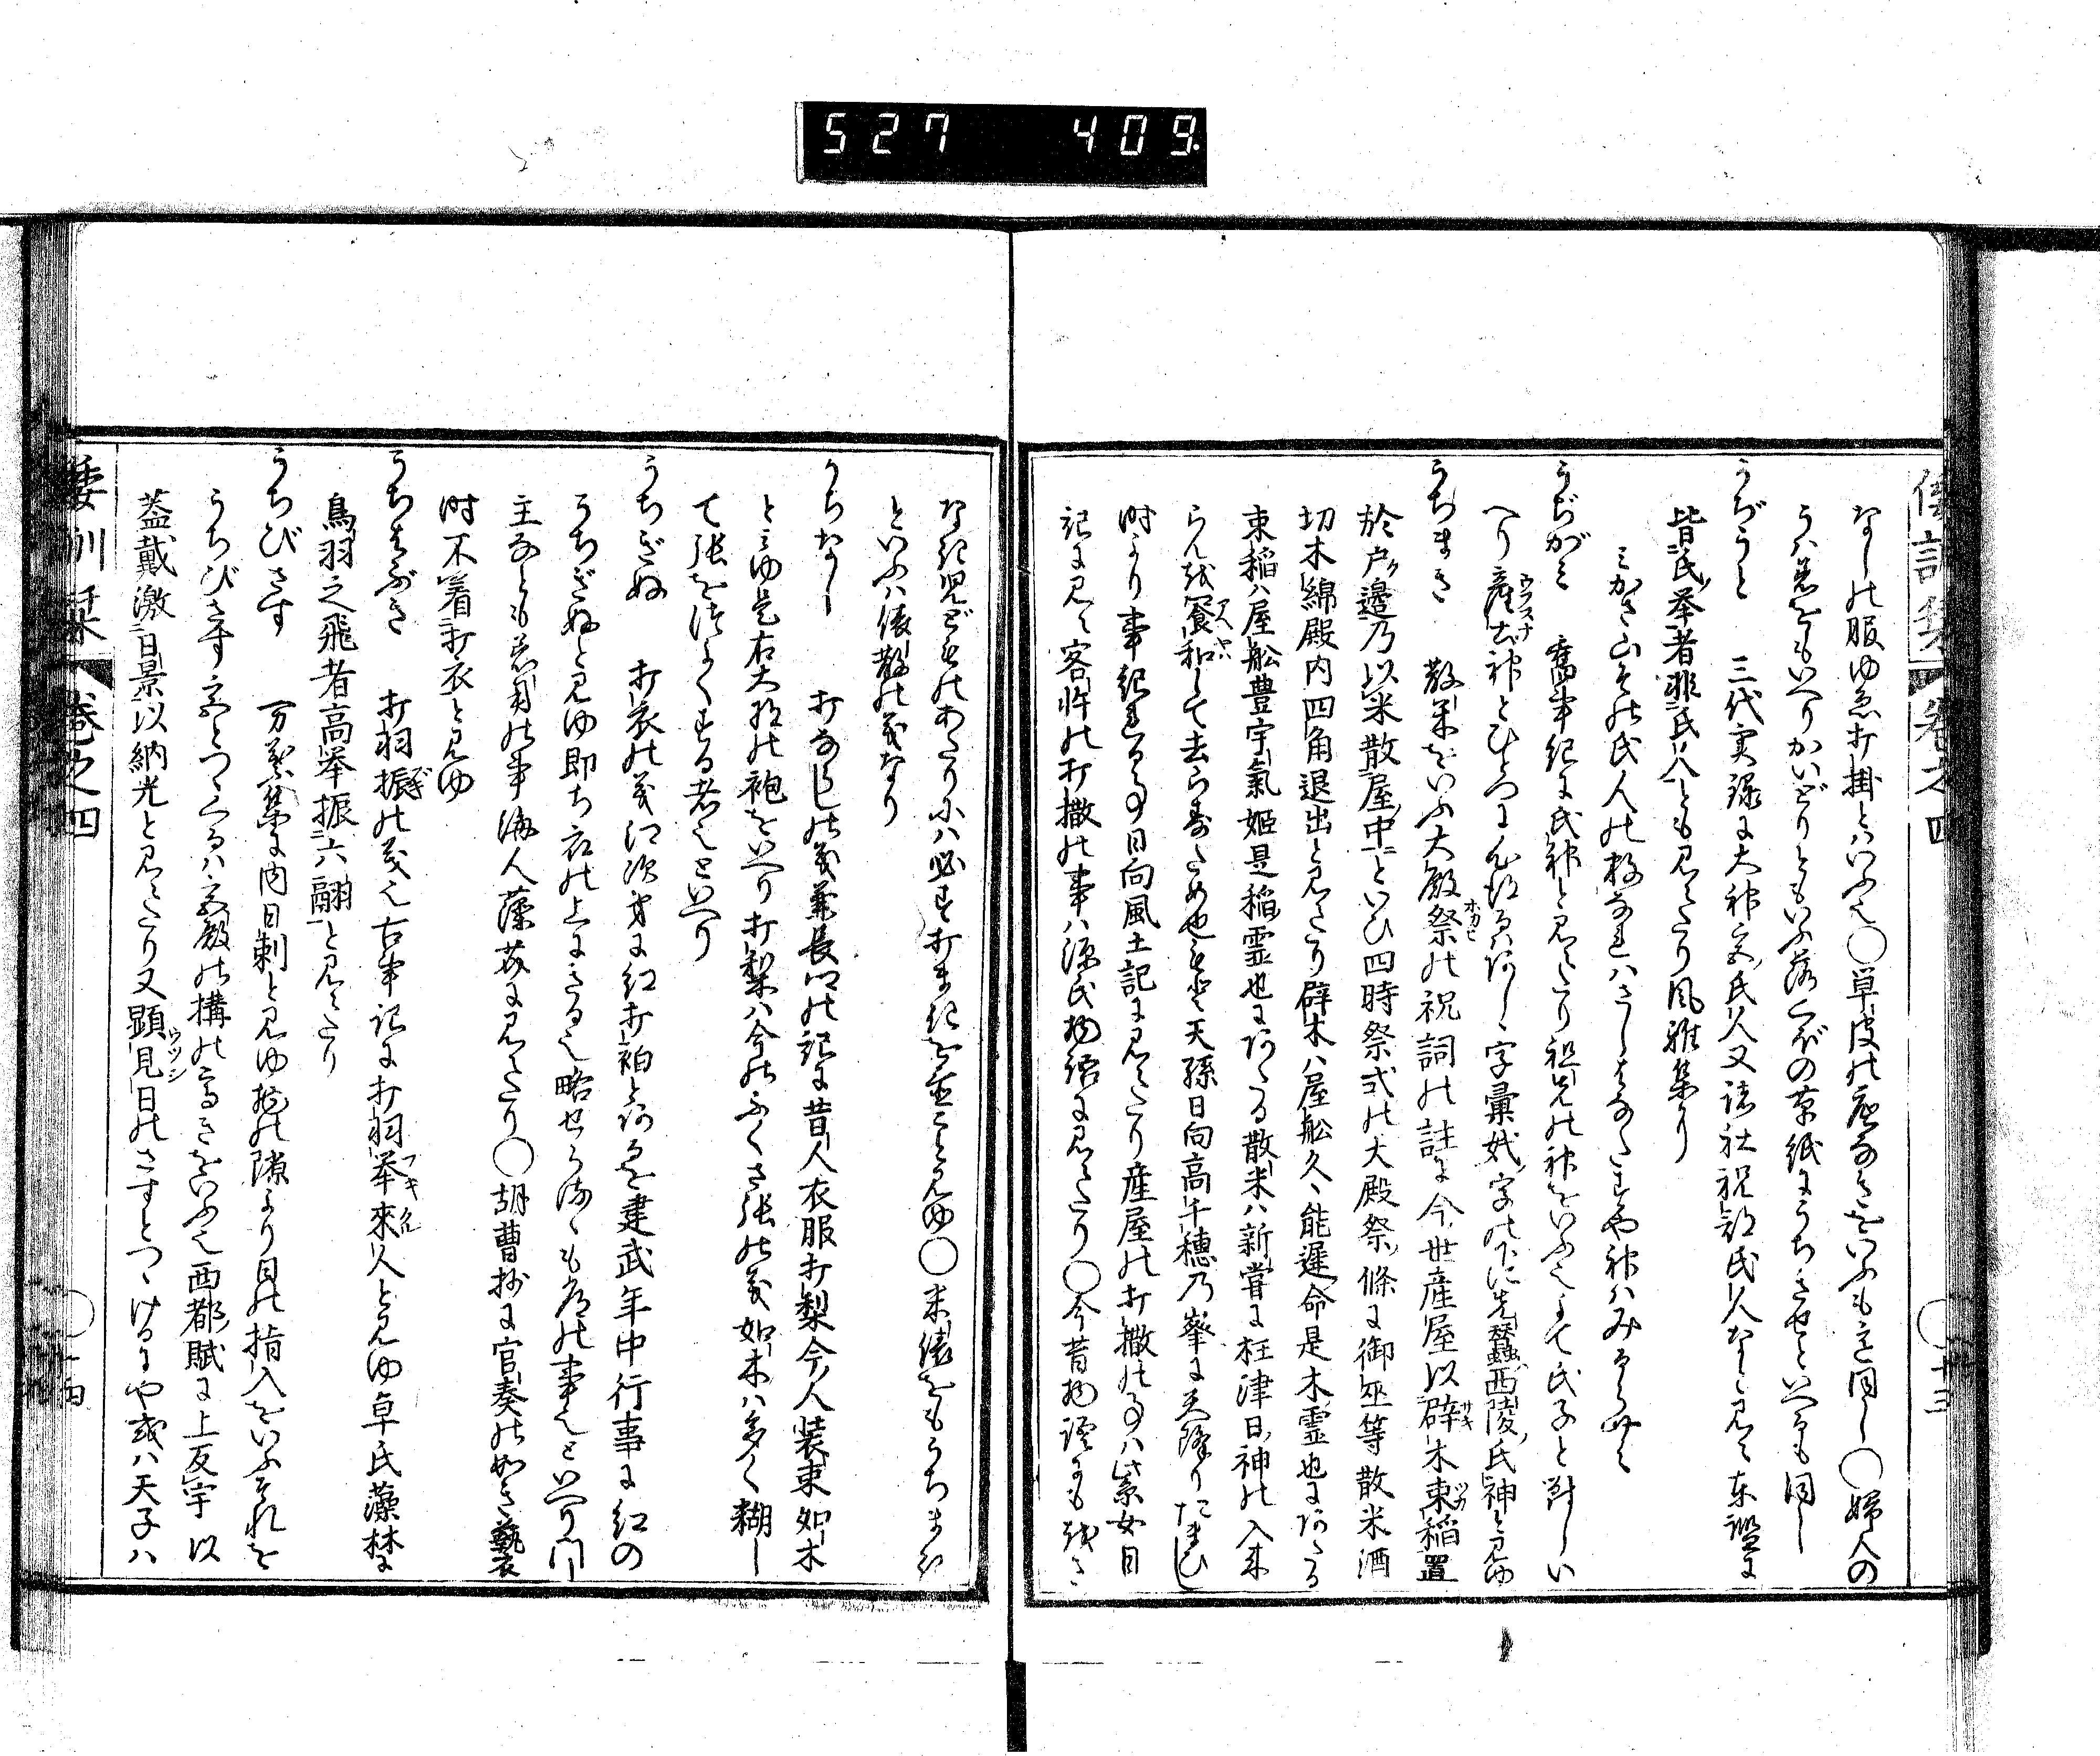 527 409
倭訓栞 巻之四 ○十三
なしの服ゆゑ打掛とはいふ也○草皮の庭なきをいふも意同し○婦人の
うハ着をもいへりかいどりともいふ落くぼの草紙にうちきせといへるも同し
うぢうと 三代実録に大神宮氏人又諸社祝部氏人なと見え東鑑に
皆氏挙者非氏人とも見えたり風雅集に
みかさ山その氏人の数なれはさしはなたすや神はみるらん
うぢがみ 旧事紀に氏神と見えたり祖先の神をいふ也よて氏子と対しい
へり産土神とひとつに心得るハ非し字彙蚔字の下に先蠶西陵氏神と見ゆ
うちまき 散米をいふ大殿祭の祝詞の註に今世産屋以辟木束稲置
於戸邊乃以米散屋中といひ四時祭式の大殿祭條に御巫等散米酒
切木綿殿内四角退出と見えたり辟木ハ屋舩久々能遅命是木霊也にあたる
束稲ハ屋舩豊宇氣姫是稲霊也にあたる散米ハ新嘗に枉津日神の入来
らんを饗和して去らしめんため也もと天孫日向高千穂乃峯に天降りたまひし
時より事起れる事日向風土記に見えたり産屋の打撒の事ハ紫女日
記に見え客忤の打撒の事ハ源氏物語に見えたり○今昔物語にもをさ
なき児どものあたりにハ必す打まきを置こと見ゆ○米俵をもうちまき
といふハ俵散の義なり
うちなし 打ならしの義兼長公の記に昔人衣服打梨今人装束如木
と見ゆ是右大将の袍をいへり打梨ハ今のふくさ張の義如木ハ多く糊し
て張を強くする者也といへり
うちぎぬ 打衣の義江次第に紅打袙とあるを建武年中行事に紅の
うちぎぬと見ゆ即ち衣の上にきる也略せらるゝも尋常の事也といへり門
主なとも着用の事海人藻芥に見えたり○胡曹抄に官奏の如き褻
時不着打衣と見ゆ
うちはぶき 打羽振の義也古事記に打羽挙来人と見ゆ卓氏藻林に
鳥羽之飛者高挙振六翮と見えたり
うちびさす 万葉集に内日刺と見ゆ物の隙より日の指入をいふそれを
うちびさす宮とつゝくるハ宮殿の構の高きをいふ也西都賦に上反宇以
蓋戴激日景以納光と見えたり又顕見日のさすとつゝけるにや或ハ天子ハ
倭訓栞 巻之四 ○十四